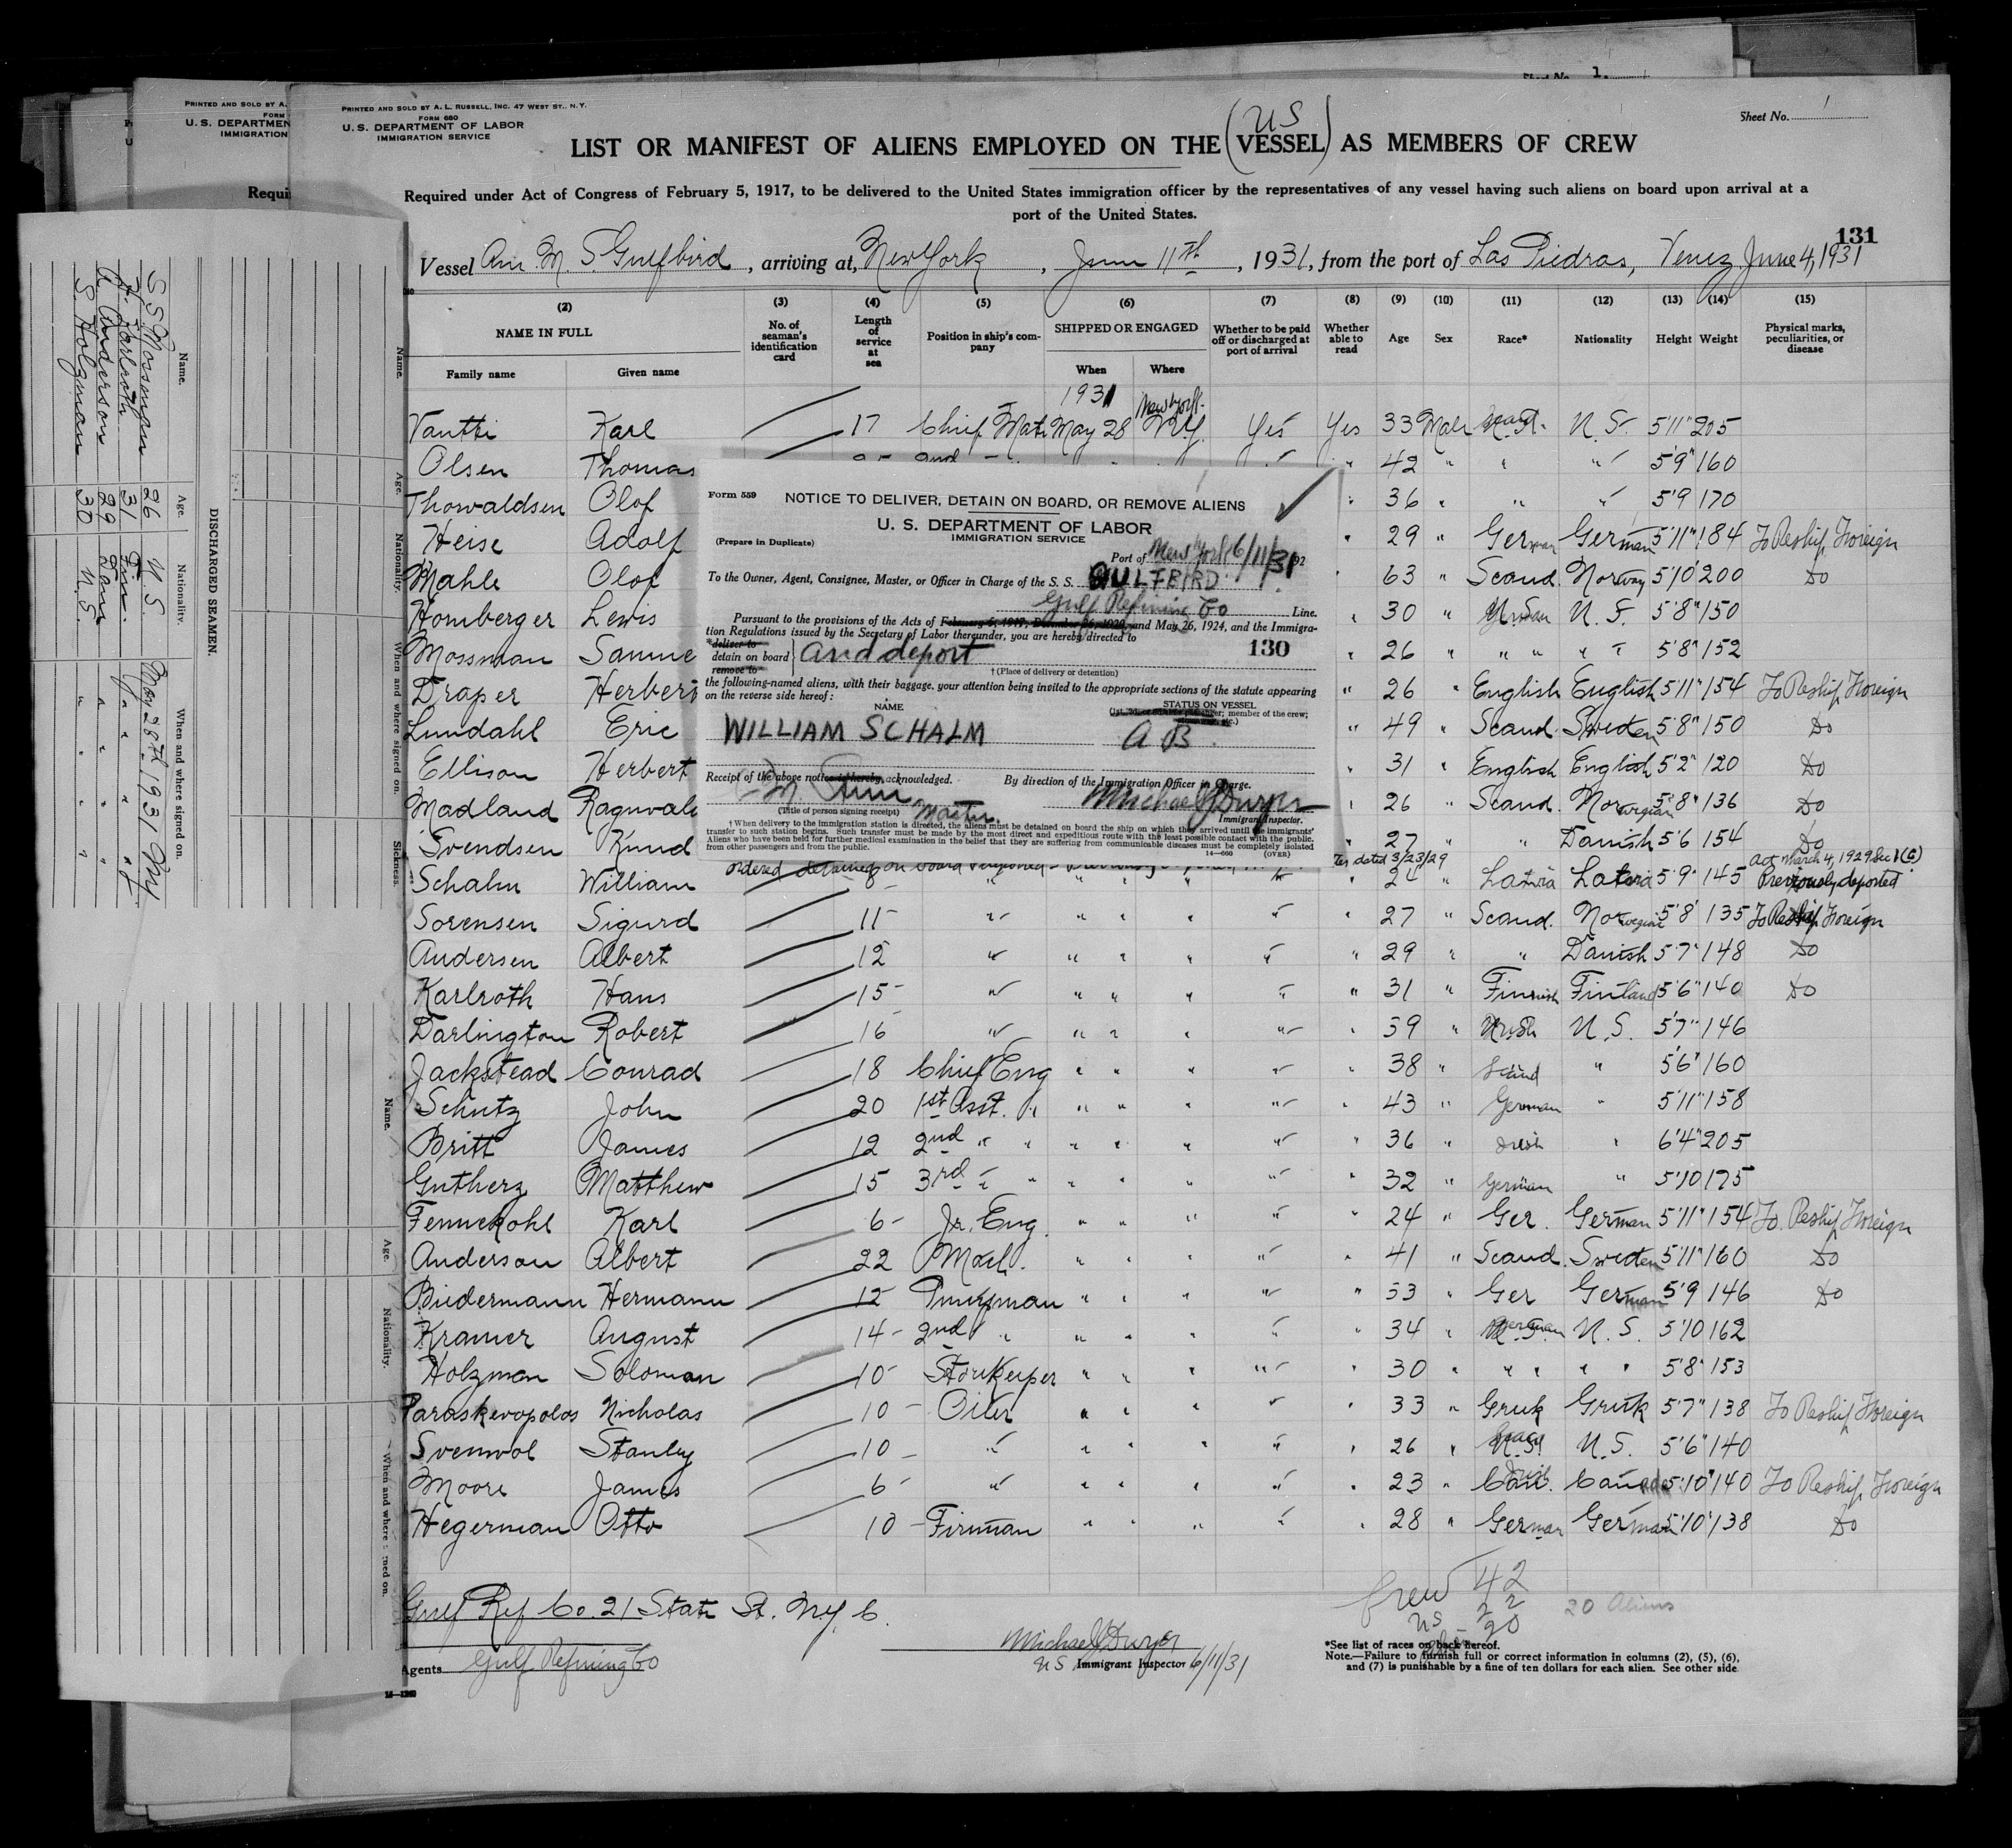 Sheet No. 1
PRINTED AND SOLD BY A.
FORM
U. S. DEPARTMEN
IMMIGRATION
Requi
PRINTED AND SOLD BY A. L. RUSSELL, INC. 47 WEST ST., N.Y.
FORM 680
U. S. DEPARTMENT OF LABOR
IMMIGRATION SERVICE
Sheet No. 1
US
LIST OR MANIFEST OF ALIENS EMPLOYED ON THE (VESSEL) AS MEMBERS OF CREW
Required under Act of Congress of February 5, 1917, to be delivered to the United States immigration officer by the representatives of any vessel having such aliens on board upon arrival at a
port of the United States.
131
Vessel Am. M. S. Gulfbird, arriving at, New York, June 11th, 1931, from the port of Las Piedras, Venez June 4, 1931
(2) (3) (4) (5) (6) (7) (8) (9) (10) (11) (12) (13) (14) (15)
NAME IN FULL
Family name Given name
No. of seaman's identification card
Length of service at sea
Position in ship's company
SHIPPED OR ENGAGED
When Where
Whether to be paid off or discharged at port of arrival
Whether able to read
Age Sex Race* Nationality Height Weight
Physical marks, peculiarities, or disease
1931 New York
Vantti Karl 17 Chief Mate May 28 N.Y. Yes Yes 33 Male U.S. 5'11" 205
Olsen Thomas 2nd " 42 " " " 5'9" 160
Thowaldsen Olof " 36 " " " 5'9 170
Heise Adolf " 29 " German German 5'11" 184 To Reship Foreign
Mahle Olof 63 " Scand. Norway 5'10" 200 Do
Homberger Lewis " 30 " U. S. 5'8" 150
Mossman Samue " 26 " " " " " 5'8" 152
Draper Herbert " 26 " English English 5'11" 154 To Reship Foreign
Lundahl Eric " 49 " Scand. Sweden 5'8" 150 Do
Ellison Herbert " 31 " English English 5'2" 120 Do
Madland Ragnvald " 26 " Scand. Norwegian 5'8" 136 Do
Svendsen Knud " 27 " " Danish 5'6 154 Do
ordered detained on board
dated 3/23/29
Act March 4, 1929 Sec 1(c)
Schalm William " " " " " " 24 " Latvia Latvia 5'9" 145 Previously deported
Sorensen Sigurd 11 " " " " " " 27 " Scand. Norwegian 5'8" 135 To Reship Foreign
Andersen Albert 12 " " " " " " 29 " " Danish 5'7" 148 Do
Karlroth Hans 15 " " " " " " 31 " Finnish Finland 5'6" 140 Do
Darlington Robert 16 " " " " " " 39 " Irish U.S. 5'7" 146
Jackstead Conrad 18 Chief Eng " " " " " 38 " Scand " 5'6" 160
Schutz John 20 1st Asst. " " " " " " 43 " German " 5'11" 158
Britt James 12 2nd " " " " " " " 36 " Irish " 6'4" 205
Gutherz Matthew 15 3rd " " " " " " " 32 " German " 5'10 175
Fennekohl Karl 6 Jr. Eng. " " " " " 24 " Ger. German 5'11" 154 To Reship Foreign
Anderson Albert 22 Mach. " " " " " 41 " Scand. Sweden 5'11" 160 Do
Biedermann Hermann 12 Pumpman " " " " " 53 " Ger German 5'9 146 Do
Kramer August 14 2nd " " " " " " 34 " German U. S. 5'10 162
Holzman Soloman 10 Storekeeper " " " " " 30 " " " " " 5'8" 153
Paraskevopolos Nicholas 10 Oiler " " " " " 33 " Greek Greek 5'7" 138 To Reship Foreign
Svenwol Stanley 10 " " " " " " 26 " U.S. 5'6" 140
Moore James 6 " " " " " " 23 " Irish Can. Canada 5'10" 140 To Reship Foreign
Hegerman Otto 10 Fireman " " " " " 28 " German German 5'10" 138 Do
Gulf Ref Co. 21 State St. N.Y. C.
Agents Gulf Refining Co
Michael J Dwyer
US Immigrant Inspector 6/11/31
Crew 42
US 22
20
20 Aliens
*See list of races on back hereof.
Note.—Failure to furnish full or correct information in columns (2), (5), (6),
and (7) is punishable by a fine of ten dollars for each alien. See other side
Form 559
NOTICE TO DELIVER, DETAIN ON BOARD, OR REMOVE ALIENS
U. S. DEPARTMENT OF LABOR
IMMIGRATION SERVICE
(Prepare in Duplicate)
Port of New York 6/11/31
To the Owner, Agent, Consignee, Master, or Officer in Charge of the S. S. GULFBIRD
Gulf Refining Co Line.
Pursuant to the provisions of the Acts of February 5, 1917, December 26, 1920, and May 26, 1924, and the Immigra-
tion Regulations issued by the Secretary of Labor thereunder, you are hereby directed to
*deliver to
detain on board
remove to
and deport
130
† (Place of delivery or detention)
the following-named aliens, with their baggage, your attention being invited to the appropriate sections of the statute appearing
on the reverse side hereof:
NAME STATUS ON VESSEL
member of the crew;
WILLIAM SCHALM A B.
Receipt of the above notice is hereby acknowledged. By direction of the Immigration Officer in Charge.
Master.
(Title of person signing receipt)
Michael J Dwyer
Immigrant Inspector.
† When delivery to the immigration station is directed, the aliens must be detained on board the ship on which they arrived until the immigrants'
transfer to such station begins. Such transfer must be made by the most direct and expeditious route with the least possible contact with the public.
Aliens who have been held for further medical examination in the belief that they are suffering from communicable diseases must be completely isolated
from other passengers and from the public.
14—660 (OVER)
DISCHARGED SEAMEN.
Name. Age. Nationality. When and where signed on. Sickness.
S S Mossman 26 U. S. May 28th 1931 NY
H. Karlroth 31 Fin. " " " "
A Anderson 29 Dane " " "
S. Holzman 30 U.S. " " "
Name. Age. Nationality. When and where signed on.